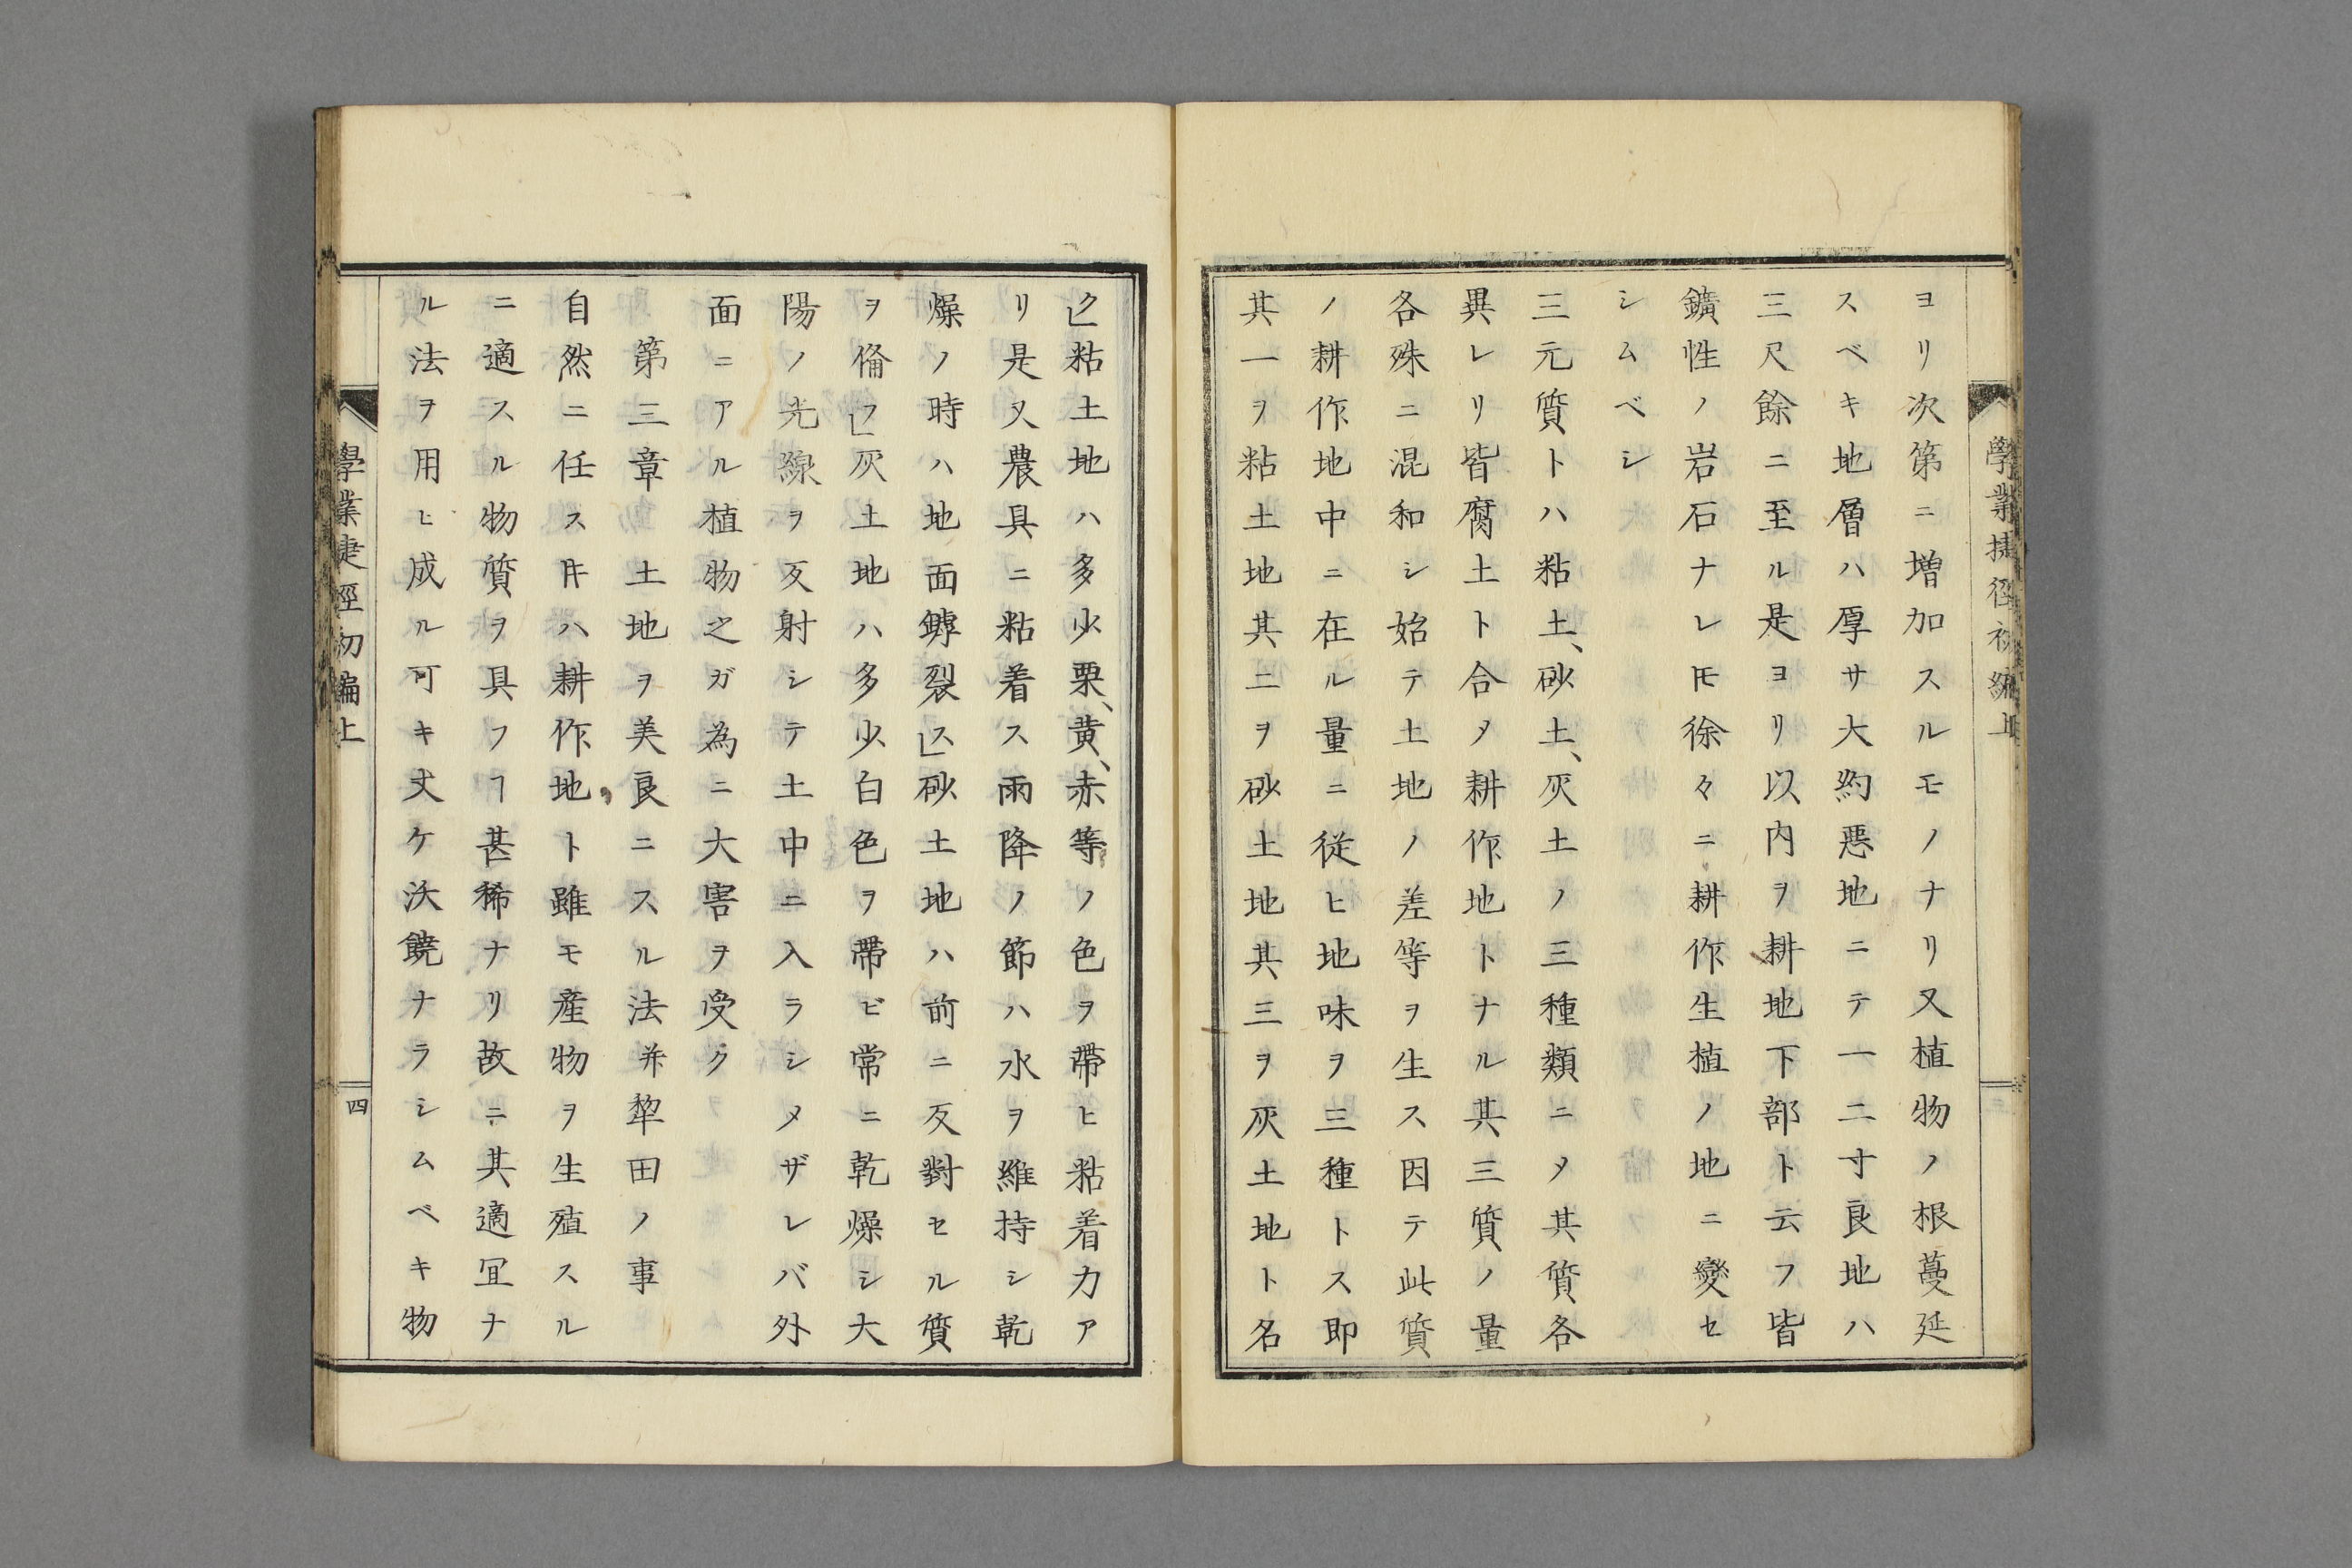 ヨリ次第ニ増加スルモノナリ又植物ノ根蔓延
スベキ地層ハ厚サ大約悪地ニテ一二寸良地ハ
三尺餘ニ至ル是ヨリ以内ヲ耕地下部ト云フ皆
鑛性ノ岩石ナレ𪜈徐々ニ耕作生植ノ地ニ變セ
シムベシ
三元質トハ粘土、砂土、灰土ノ三種類ニ〆其質各
異レリ皆腐土ト合〆耕作地トナル其三質ノ量
各殊ニ混和シ始テ土地ノ差等ヲ生ス因テ此質
ノ耕作地中ニ在ル量ニ従ヒ地味ヲ三種トス即
其一ヲ粘土地其二ヲ砂土地其三ヲ灰土地ト名
ク𠃊粘土地ハ多少栗、黄、赤等ノ色ヲ帶ヒ粘着力ア
リ是又農具ニ粘着ス雨降ノ節ハ水ヲ維持シ乾
燥ノ時ハ地面罅裂ス𠃊砂土地ハ前ニ反對セル質
ヲ備フ𠃊灰土地ハ多少白色ヲ帶ビ常ニ乾燥シ大
陽ノ光線ヲ反射シテ土中ニ入ラシメザレバ外
面ニアル植物之ガ為ニ大害ヲ受ク
第三章 土地ヲ美良ニスル法并犂田ノ事
自然ニ任ス𪜈ハ耕作地ト雖モ産物ヲ生殖スル
ニ適スル物質ヲ具フヿ甚稀ナリ故ニ其適宜ナ
ル法ヲ用ヒ成ル可キ丈ケ沃饒ナラシムベキ物
學業捷徑初編上
四